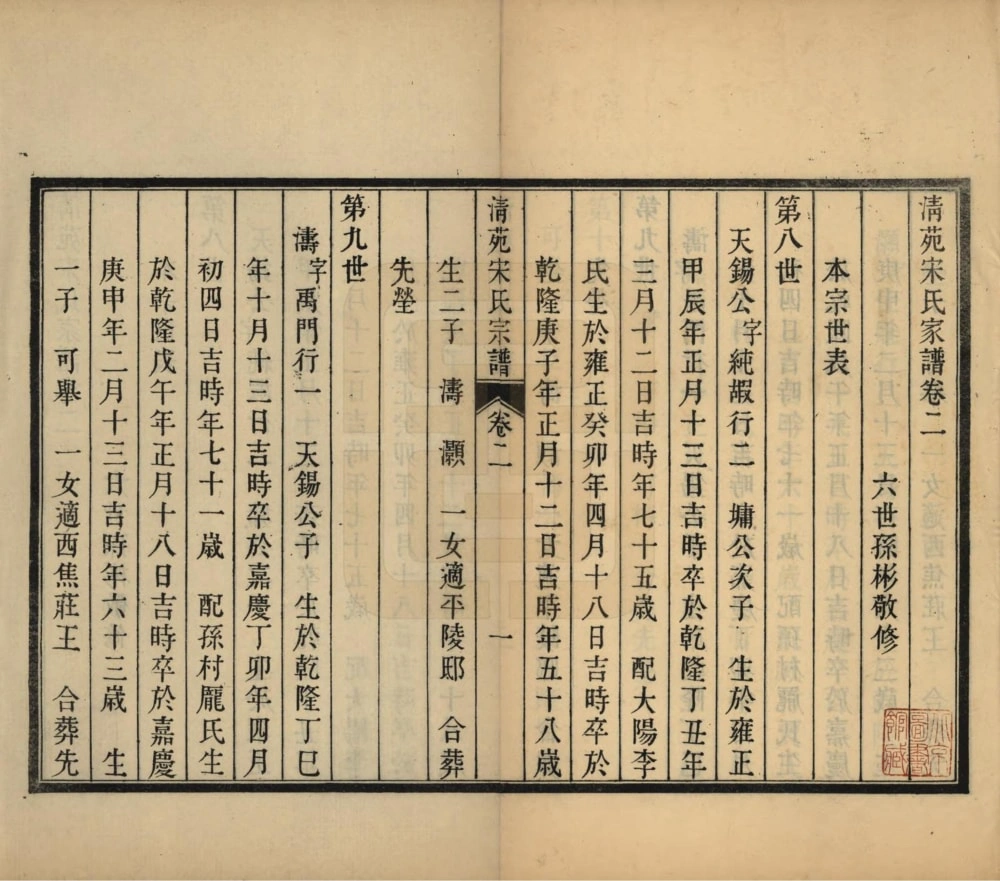 清苑宋氏家譜卷二
六世孫彬敬修
本宗世表
第八世
天錫公字純嘏行二 墉公次子 生於雍正
甲辰年正月十三日吉時卒於乾隆丁丑年
三月十二日吉時年七十五歲 配大陽李
氏生於雍正癸卯年四月十八日吉時卒於
乾隆庚子年正月十二日吉時年五十八歲
清苑宋氏宗譜 卷二 一
生二子 濤 灝 一女適平陵邸 合葬
先塋
第九世
濤字禹門行一 天錫公子 生於乾隆丁巳
年十月十三日吉時卒於嘉慶丁卯年四月
初四日吉時年七十一歲 配孫村龎氏生
於乾隆戊午年正月十八日吉時卒於嘉慶
庚申年二月十三日吉時年六十三歲 生
一子 可舉 一女適西焦莊王 合葬先